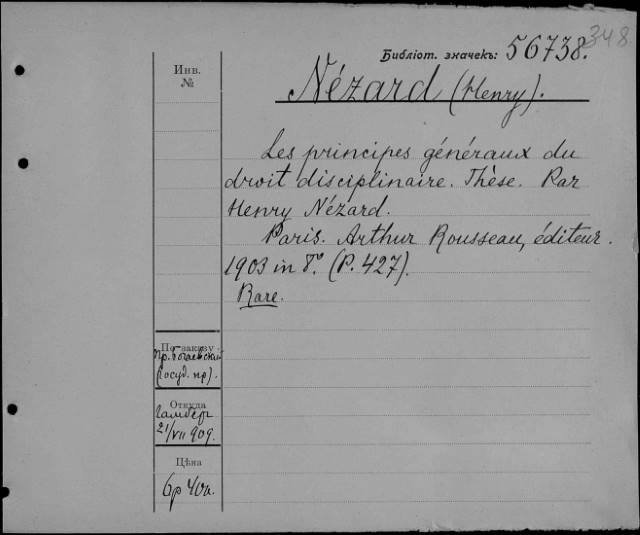 348
Библіот. значекъ: 56738.
Инв.
№
Nézard (Henry).
Les principes généraux du
droit disciplinaire. Thèse. Par
Henry Nézard.
Paris. Arthur Rousseau, éditeur.
1903 in 8º. (P. 427).
Rare.
По заказу
пр.
(госуд. пр).
Откуда
Гамбер
21/VII 909.
Цѣна
6р 40к.